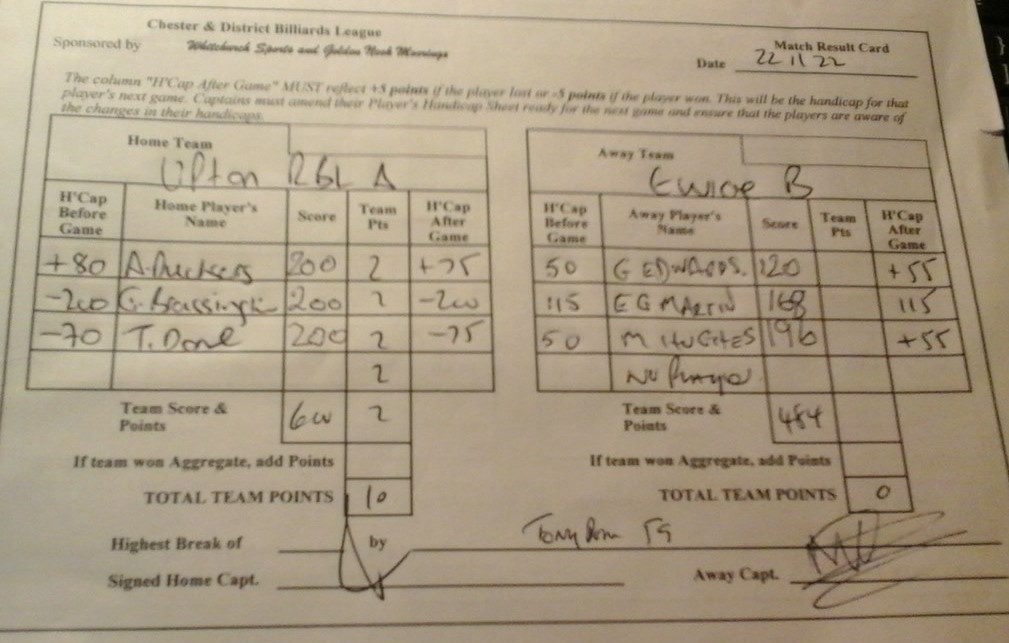 Chester & District Billiards League
Sponsored by Whitchurch Sports and Golden Nook Moorings
Match Result Card
Date 22 11 22
The column "H'Cap After Game" MUST reflect +5 points if the player lost or -5 points if the player won. This will be the handicap for that
player's next game. Captains must amend their Player's Handicap Sheet ready for the next game and ensure that the players are aware of
the changes in their handicaps.
Home Team
Upton RBL A
H'Cap Before Game Home Player's Name Score Team Pts H'Cap After Game
+80 200 2 +75
-200 G. 200 2 -200
-70 T. Done 200 2 -75
2
Team Score & Points 600 2
If team won Aggregate, add Points
TOTAL TEAM POINTS 10
Away Team
B
H'Cap Before Game Away Player's Name Score Team Pts H'Cap After Game
50 G EDWARDS. 120 +55
115 E G MARTIN 168 115
50 M HUGHES 196 +55
NO Player
Team Score & Points 484
If team won Aggregate, add Points
TOTAL TEAM POINTS 0
Highest Break of by Tony Done 59
Signed Home Capt. Away Capt.